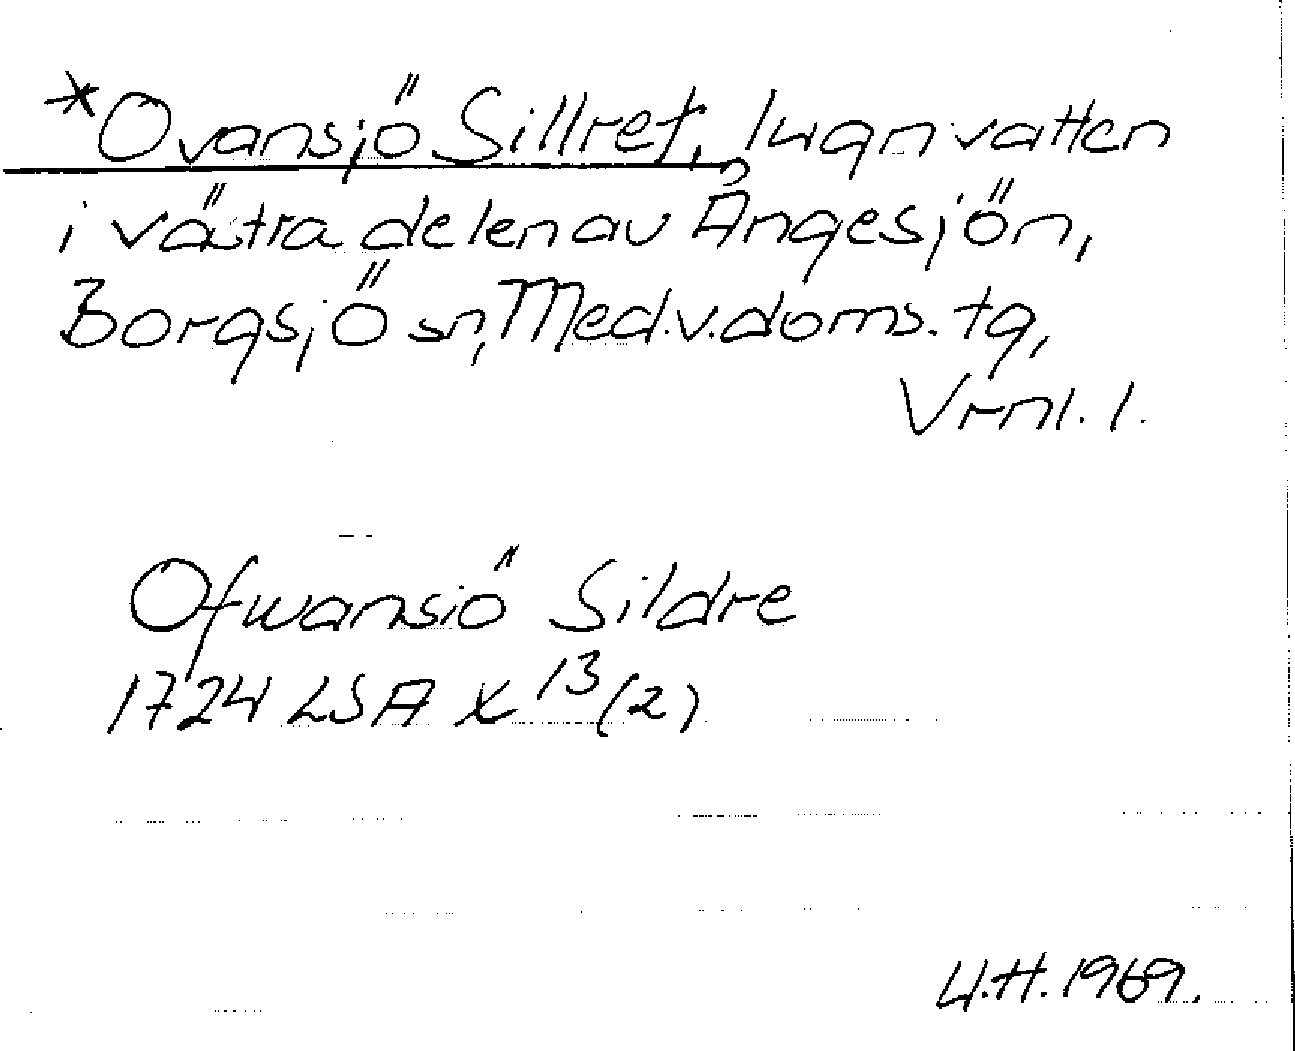 *Ovansjö Sillret, lugnvatten
i västra delen av Ångesjön,
Borgsjö sn, Med.v.doms. tg,
Vrnl. l.
Ofwansiö Sildre
1724 LSA X 13(2)
U.H. 1969.